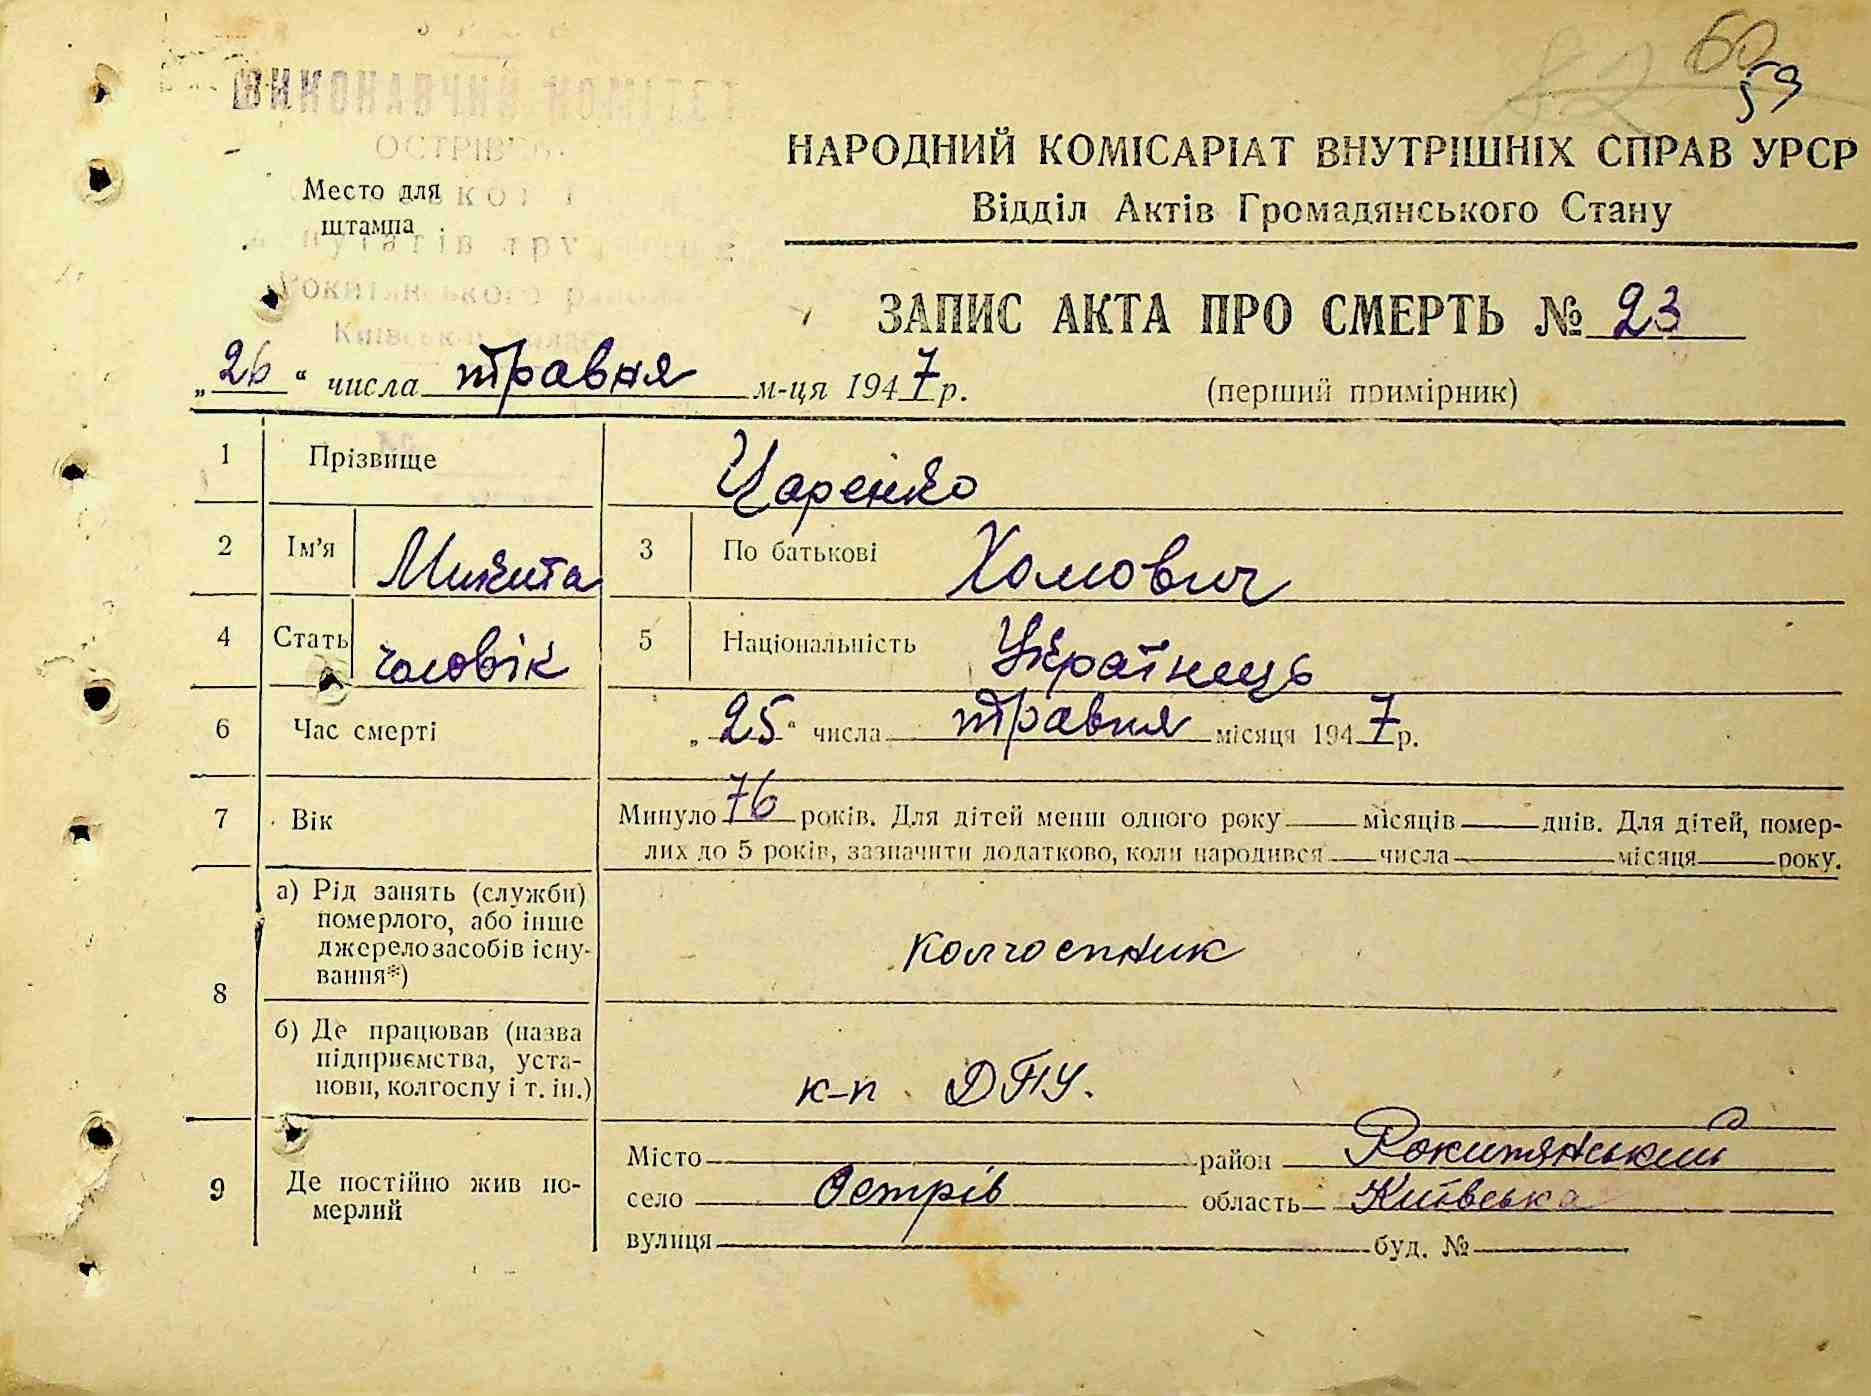 60
82
59
ВИКОНАВЧИЙ КОМІТЕТ
НАРОДНИЙ КОМІСАРІАТ ВНУТРІШНІХ СПРАВ УРСР
Место для
штампа
Відділ Актів Громадянського Стану
Рокитянського
ЗАПИС АКТА ПРО СМЕРТЬ № 23
„26“ числа травня м-ця 1947 р. (перший примірник)
1 Прізвище Царенко
2 Ім'я Микита 3 По батькові Хомович
4 Стать чоловік 5 Національність Українець
6 Час смерті „25“ числа травня місяця 1947 р.
7 Вік Минуло 76 років. Для дітей менш одного року місяців днів. Для дітей, помер-
лих до 5 років, зазначити додатково, коли народився числа місяця року.
8 а) Рід занять (служби)
померлого, або інше
джерело засобів існу-
вання*)
колгоспник
б) Де працював (назва
підприємства, уста-
нови, колгоспу і т. ін.)
к-п ДПУ.
9 Де постійно жив по-
мерлий
Місто район Рокитянський
село Острів область Київська
вулиця буд. №